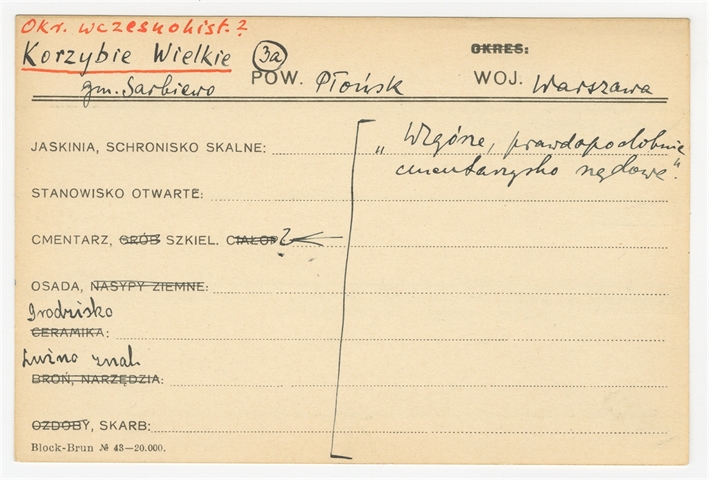 Okr. wczesnohist.?
Korzybie Wielkie 3a OKRES:
gm. Sarbiewo POW. Płońsk WOJ. Warszawa
JASKINIA, SCHRONISKO SKALNE: „Wzgórze, prawdopodobnie
cmentarzysko rzędowe".
STANOWISKO OTWARTE:
CMENTARZ, GRÓB SZKIEL. CIAŁOP. ?
OSADA, NASYPY ZIEMNE:
grodzisko
CERAMIKA:
Luźno znal.
BROŃ, NARZĘDZIA:
OZDOBY, SKARB:
Block-Brun № 43—20.000.